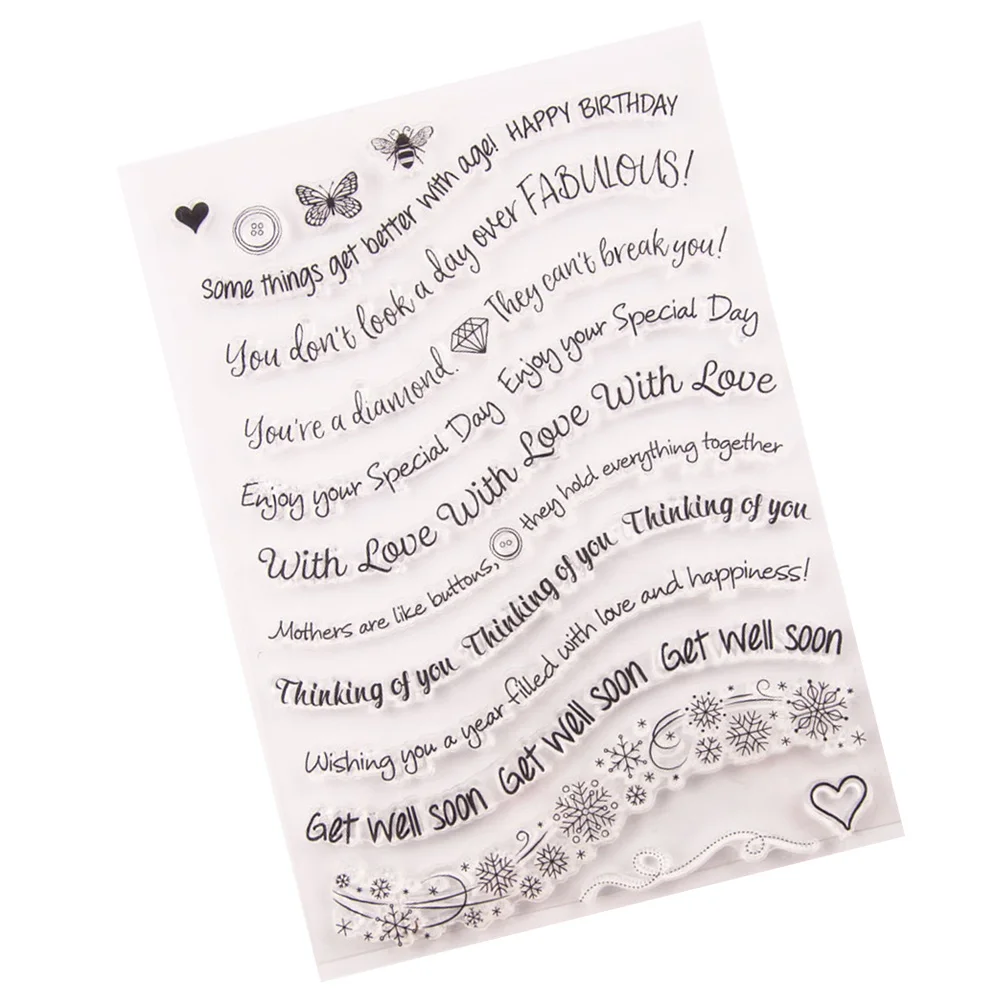 Some things get better with age! HAPPY BIRTHDAY
You don't look a day over FABULOUS!
You're a diamond. They can't break you!
Enjoy your Special Day Enjoy your Special Day
With Love With Love With Love
Mothers are like buttons, they hold everything together
Thinking of you Thinking of you Thinking of you
Wishing you a year filled with love and happiness!
Get Well Soon Get Well Soon Get Well Soon